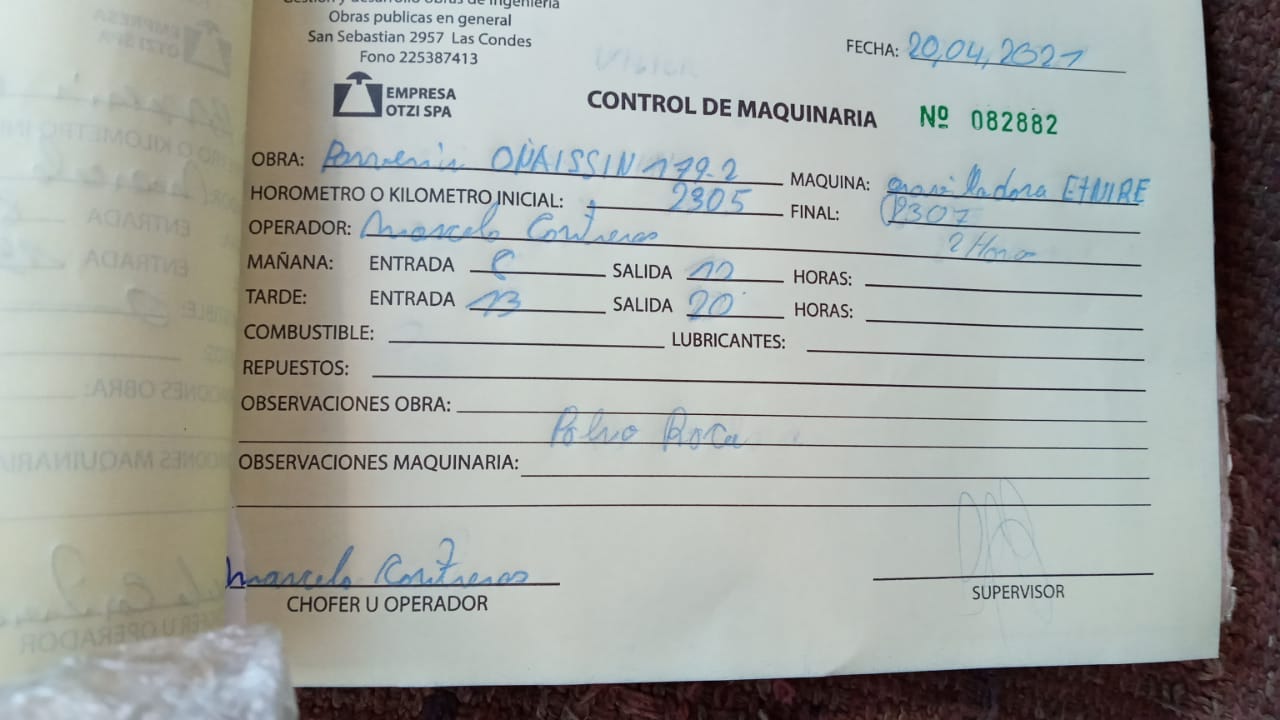 Gestion y desarrollo obras de ingenieria
Obras publicas en general
San Sebastian 2957 Las Condes
Fono 225387413
FECHA: 20,04,2021
EMPRESA
OTZI SPA
CONTROL DE MAQUINARIA Nº 082882
OBRA: Porvenir ONAISSIN 179-2 MAQUINA: gravilladora ETNIRE
HOROMETRO O KILOMETRO INICIAL: 2305 FINAL: 2307
OPERADOR: Marcelo Contreras 2 Horas
MAÑANA: ENTRADA 8 SALIDA 12 HORAS:
TARDE: ENTRADA 13 SALIDA 20 HORAS:
COMBUSTIBLE: LUBRICANTES:
REPUESTOS:
OBSERVACIONES OBRA:
Polvo Roca
OBSERVACIONES MAQUINARIA:
Marcelo Contreras
CHOFER U OPERADOR
SUPERVISOR